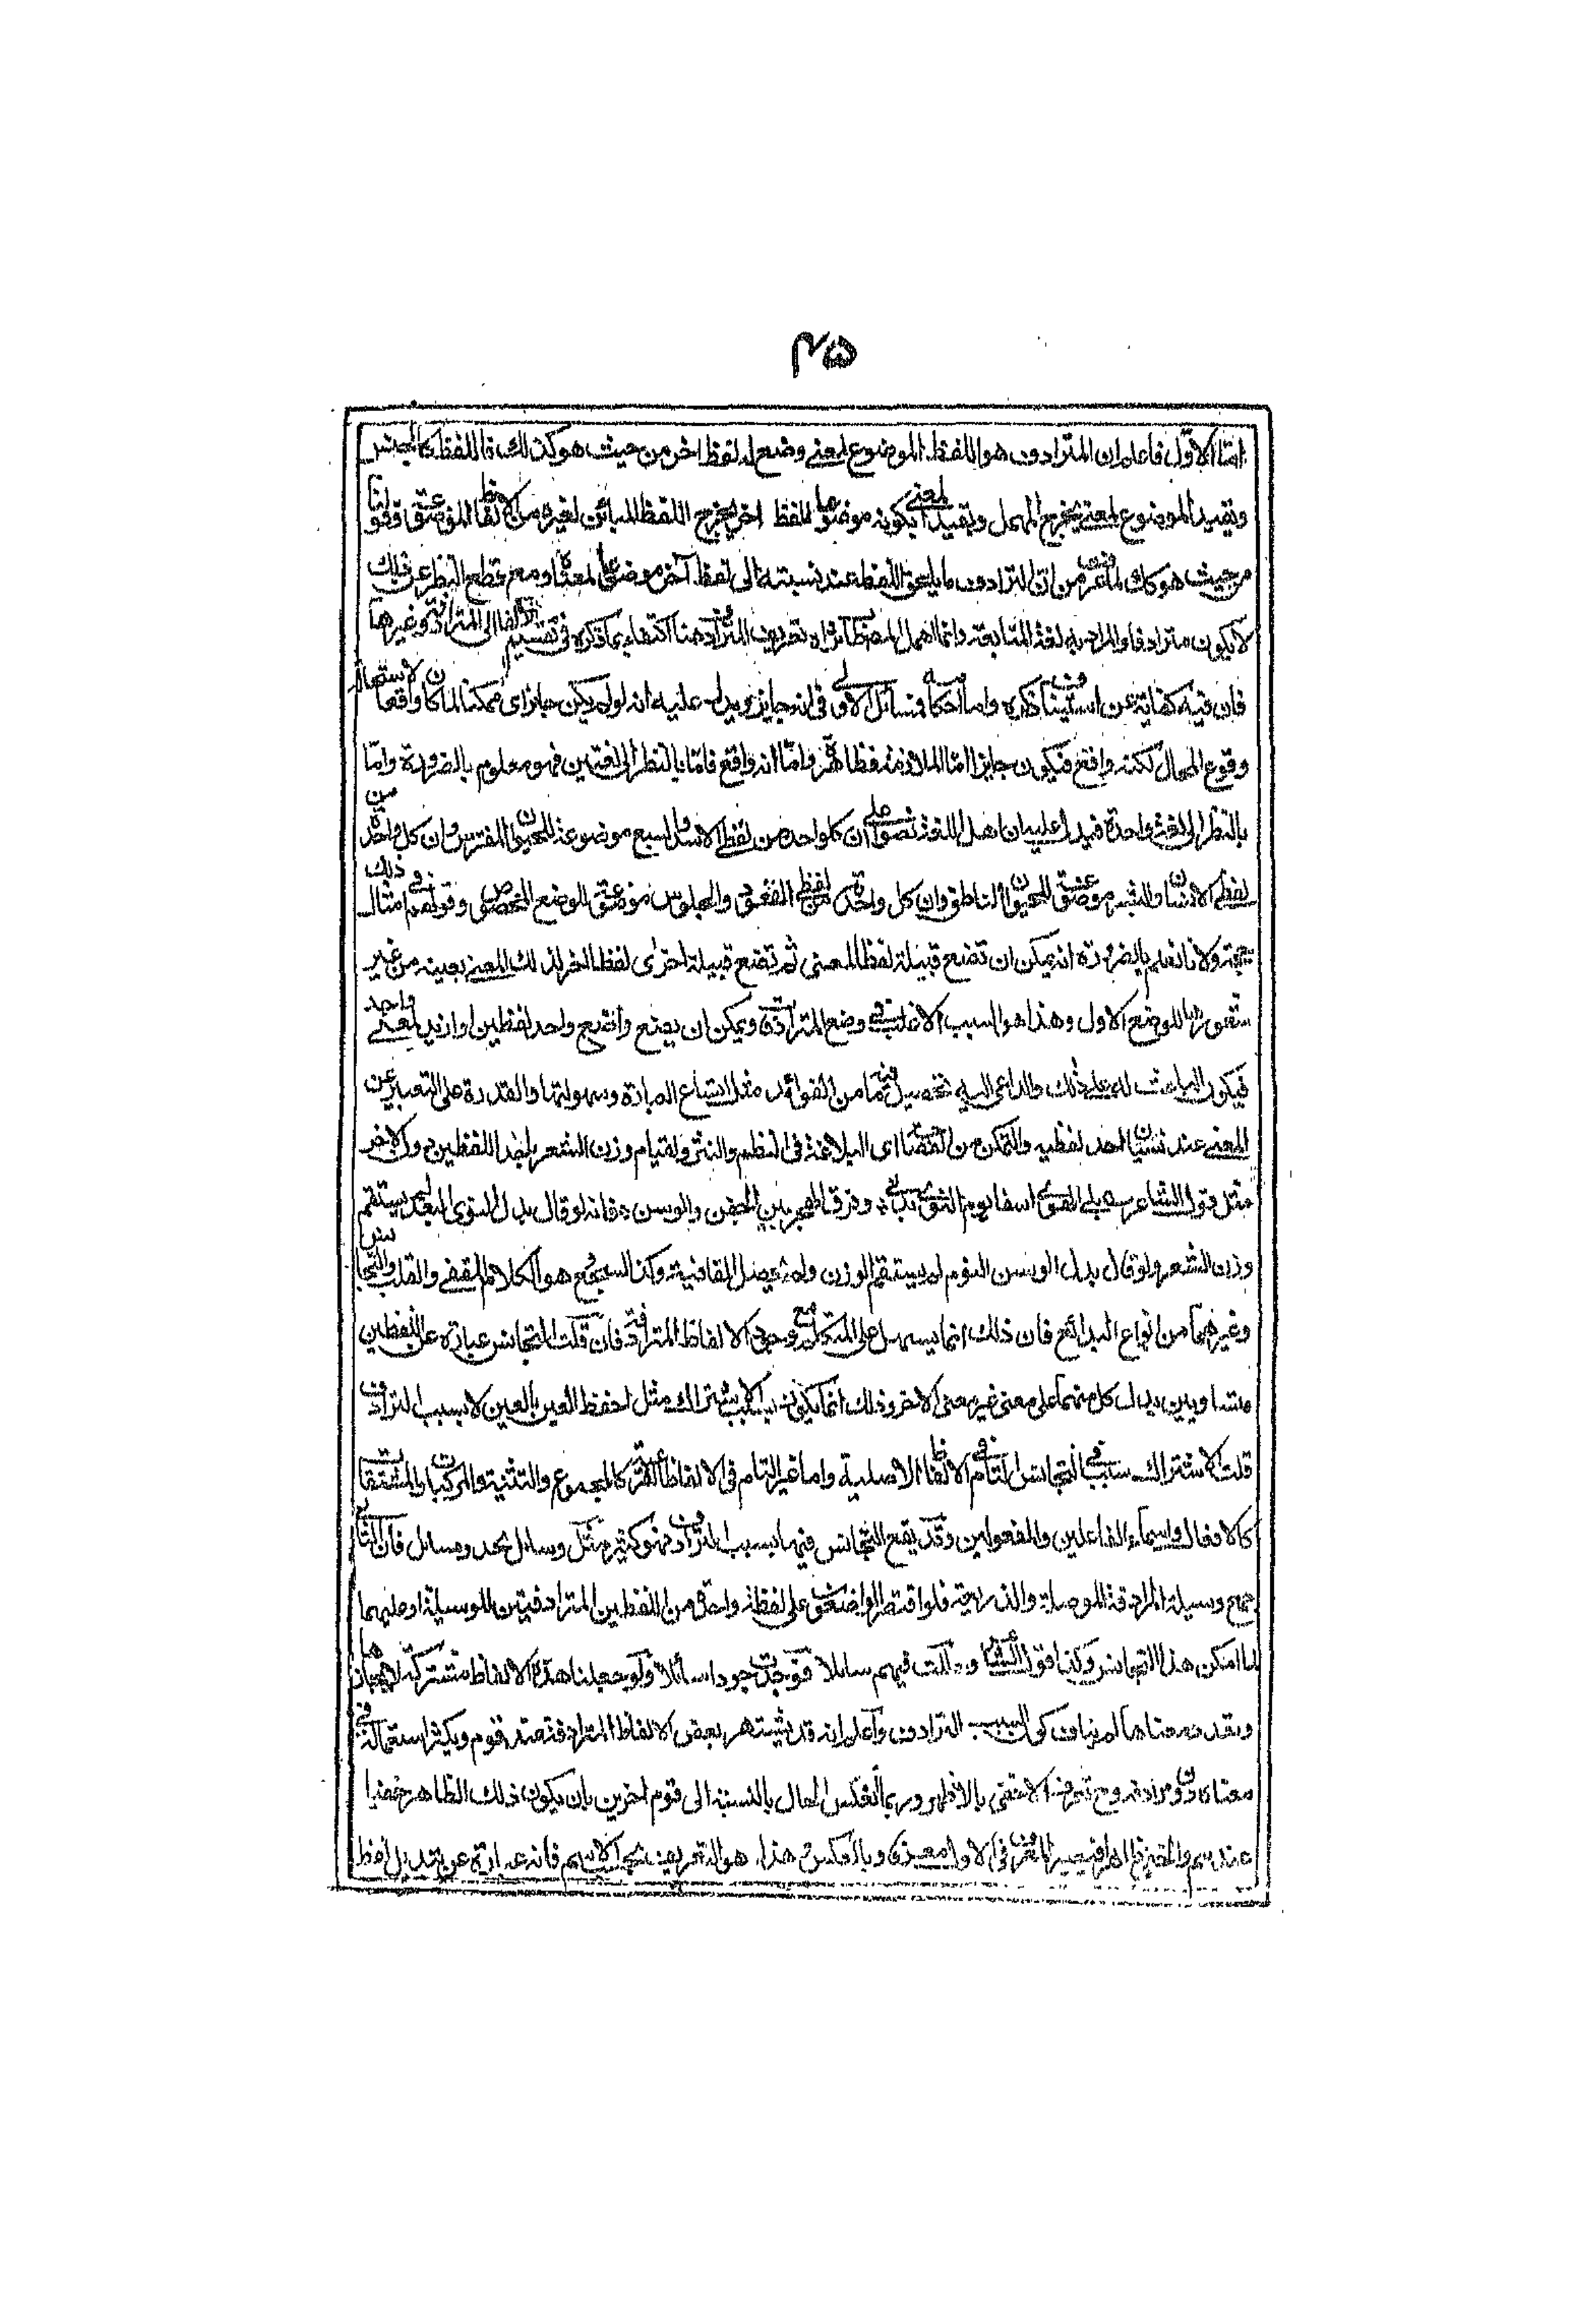 ٤٥
اما الاول فاعلم ان المترادف هو اللفظ الموضوع لمعنى وضع له لفظ اخر من حيث هو كذلك فاللفظ كالجنس
وتقييد الموضوع لمعنى يخرج المهمل وتقييد المعنى بكونه موضوعا للفظ اخر يخرج اللفظ المباين لغيره من الالفاظ الموضوعة وقولنا
من حيث هو كذلك لما عرفت من ان الترادف ما يلحق اللفظ عند نسبته الى لفظ آخر موضوع لمعناه ومع قطع النظر عن ذلك
لا يكون مترادفا والمراد به لغة المتابعة وانما اهمل المص تعريف الترادف هنا اكتفاء بما ذكره في تقسيم الالفاظ الى المترادفة وغيرها
فان فيه كفاية عن استيناف ذكره واما احكامه فمسائل الاولى في انه جايز ويدل عليه انه لو لم يكن جايزا اى ممكنا لما كان واقعا لاستحالة
وقوع المحال لكنه واقع فيكون جايزا اما الملازمة فظاهرة واما انه واقع فاما بالنظر الى لغتين فهو معلوم بالضرورة واما
بالنظر الى لغة واحدة فيدل عليه ان اهل اللغة نصوا على ان كلا واحد من لفظى الاسد والسبع موضوعة للحيوان المفترس وان كل واحد من
لفظى الانسان والبشر موضوعة للحيوان الناطق وان كل واحدة من لفظى القعود والجلوس موضوعة للوضع المخصوص وقولهم في امثال ذلك
حجة ولانا نعلم بالضرورة انه يمكن ان تضع قبيلة لفظا لمعنى ثم تضع قبيلة اخرى لفظا اخر لذلك المعنى بعينه من غير
شعورها للوضع الاول وهذا هو السبب الاغلب في وضع المترادفات ويمكن ان يضع واضع واحد لفظين او ازيد لمعنى واحد
فيكون الباعث له على ذلك والداعى اليه تحصيل فائدة ما من الفوائد مثل اتساع العبارة وسهولتها والقدرة على التعبير عن
المعنى عند نسيان احد لفظيه والتمكن من الفصاحة اى البلاغة في النظم والنثر ولقيام وزن الشعر باحد اللفظين دون الاخر
مثل قول الشاعر بلى الهوى اسفا يوم النوى بدنى وفرق الهجر بين الجفن والوسن فانه لو قال بدل النوى البعد لم يستقم
وزن الشعر ولو قال بدل الوسن النوم لم يستقم الوزن ولم تحصل القافية وكذا السجع هو الكلام المقفى والقلب والتجانس
وغيرهما من انواع البدائع فان ذلك انما يسهل على المتكلم مع وجود الالفاظ المترادفة فان قلت التجانس عبارة عن اللفظين
متساويين يدل كل منهما على معنى غير معنى الاخر وذلك انما يكون بسبب الاشتراك مثل احفظ العين بالعين لا بسبب الترادف
قلت الاشتراك سبب في التجانس التام في الالفاظ الاصلية واما غير التام في الالفاظ كالمجموع والتثنية والمركبات والمشتقات
كالافعال واسماء الفاعلين والمفعولين وقد يقع التجانس فيها بسبب الترادف فهو كثير مثل وسائل تجد ومسائل فان
جمع وسيلة المرادفة للوصلة والذريعة فلو اقتصر الواضع على لفظة واحدة من اللفظين المترادفتين للوسيلة او عليهما
لما امكن هذا التجانس وكذا قول الشاعر وجدت جودا سائلا ولو جعلنا هذه الالفاظ مشتركة
معناها لم يناف كون السبب الترادف واعلم انه قد يشتهر بعض الالفاظ المترادفة عند قوم ويكثر استعماله في
معناه دون مرادفه وح تعرف الاخفى بالاظهر وربما انعكس الحال بالنسبة الى قوم اخرين بان يكون ذلك الظاهر خفيا
في الاول وبالعكس هذا هو التعريف بحسب الاسم فانه عبارة عن تبديل لفظ